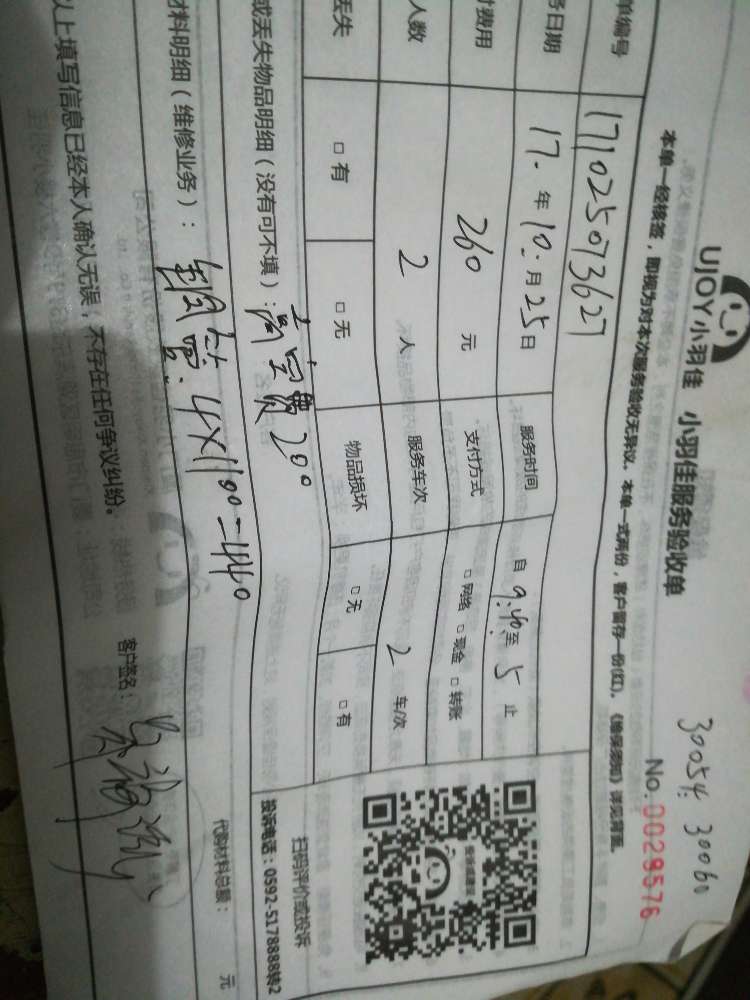 UJOY小羽佳 小羽佳服务验收单
30054. 30060
No.0029576
本单一经核签，即视为对本次服务验收无异议。本单一式两份，客户留存一份(红)。《维保须知》详见背面。
单编号 171025073627
务日期 17. 年 10. 月 25 日 服务时间 自 9.40 至 5 止
付费用 260 元 支付方式 □ 网络 □ 现金 □ 转账
人数 2 人 服务车次 2 车/次
丢失 □ 有 □ 无 物品损坏 □ 无 □ 有
或丢失物品明细（没有可不填）: 高空费 200
材料明细（维修业务）: 4X1100=4400
代购材料总额: 元
以上填写信息已经本人确认无误，不存在任何争议纠纷。 客户签名:
扫码评价或投诉
投诉电话：0592-5178888转2